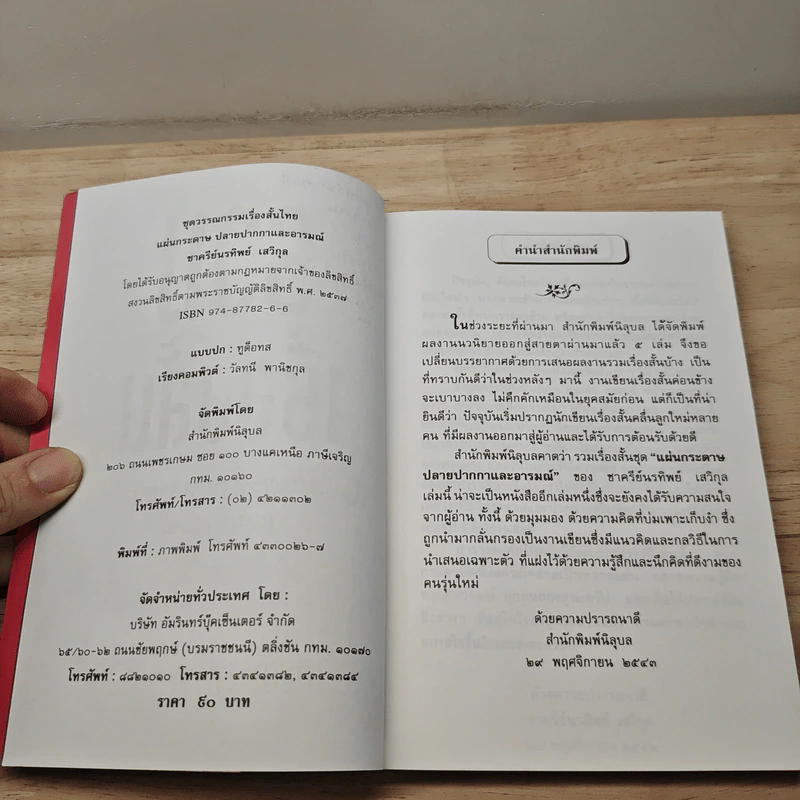 ชุดวรรณกรรมเรื่องสั้นไทย
แผ่นกระดาษ ปลายปากกาและอารมณ์
ชาครีย์นรทิพย์ เสวิกุล
โดยได้รับอนุญาตถูกต้องตามกฎหมายจากเจ้าของลิขสิทธิ์
สงวนลิขสิทธิ์ตามพระราชบัญญัติลิขสิทธิ์ พ.ศ. ๒๕๓๗
ISBN 974-87782-6-6
แบบปก : ทูด็อทส
เรียงคอมพิวต์ : วัลทนี พานิชกุล
จัดพิมพ์โดย
สำนักพิมพ์นิลุบล
๒๐๖ ถนนเพชรเกษม ซอย ๑๐๐ บางแคเหนือ ภาษีเจริญ
กทม. ๑๐๑๖๐
โทรศัพท์/โทรสาร : (๐๒) ๔๒๑๑๓๐๒
พิมพ์ที่ : ภาพพิมพ์ โทรศัพท์ ๔๓๓๐๐๒๖-๗
จัดจำหน่ายทั่วประเทศ โดย :
บริษัท อัมรินทร์บุ๊คเซ็นเตอร์ จำกัด
๖๕/๖๐-๖๒ ถนนชัยพฤกษ์ (บรมราชชนนี) ตลิ่งชัน กทม. ๑๐๑๗๐
โทรศัพท์ : ๘๘๒๑๐๑๐ โทรสาร : ๔๓๔๑๓๘๒, ๔๓๔๑๓๘๔
ราคา ๙๐ บาท
คำนำสำนักพิมพ์
ในช่วงระยะที่ผ่านมา สำนักพิมพ์นิลุบล ได้จัดพิมพ์
ผลงานนวนิยายออกสู่สายตาผ่านมาแล้ว ๕ เล่ม จึงขอ
เปลี่ยนบรรยากาศด้วยการเสนอผลงานรวมเรื่องสั้นบ้าง เป็น
ที่ทราบกันดีว่าในช่วงหลังๆ มานี้ งานเขียนเรื่องสั้นค่อนข้าง
จะเบาบางลง ไม่คึกคักเหมือนในยุคสมัยก่อน แต่ก็เป็นที่น่า
ยินดีว่า ปัจจุบันเริ่มปรากฏนักเขียนเรื่องสั้นคลื่นลูกใหม่หลาย
คน ที่มีผลงานออกมาสู่ผู้อ่านและได้รับการต้อนรับด้วยดี
สำนักพิมพ์นิลุบลคาดว่า รวมเรื่องสั้นชุด “แผ่นกระดาษ
ปลายปากกาและอารมณ์” ของ ชาครีย์นรทิพย์ เสวิกุล
เล่มนี้ น่าจะเป็นหนังสืออีกเล่มหนึ่งซึ่งจะยังคงได้รับความสนใจ
จากผู้อ่าน ทั้งนี้ ด้วยมุมมอง ด้วยความคิดที่บ่มเพาะเก็บงำ ซึ่ง
ถูกนำมากลั่นกรองเป็นงานเขียนซึ่งมีแนวคิดและกลวิธีในการ
นำเสนอเฉพาะตัว ที่แฝงไว้ด้วยความรู้สึกและนึกคิดที่ดีงามของ
คนรุ่นใหม่
ด้วยความปรารถนาดี
สำนักพิมพ์นิลุบล
๒๙ พฤศจิกายน ๒๕๔๓